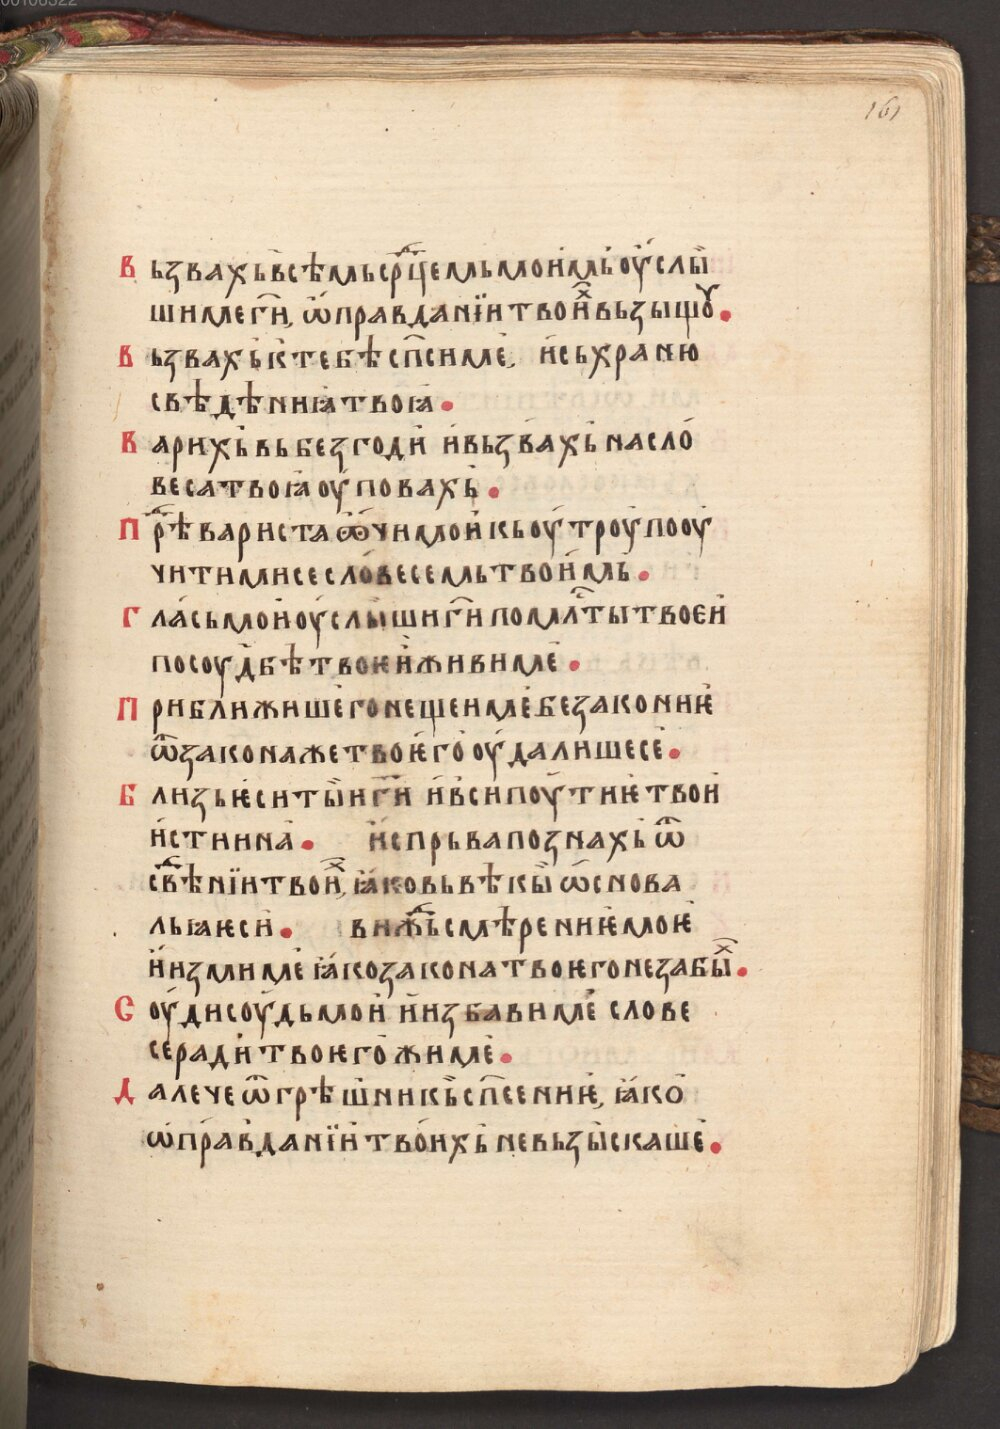 00106322
161
Вьзвахь всѣмь срⷣцемь моимь оуслы
ши ме гⷭи, ѡправданїи твоиⷯ вьзыщꙋ.
Вьзвахь к тебѣ спⷭи ме, и сьхраню
свѣдѣниꙗ твоꙗ.
Варихь вь безгоди и вьзвахь на сло
веса твоꙗ оуповахь.
Прⷣѣвариста ѿчи мои кь оутроу пооу
чити ми се словесемь твоимь.
Глась мои оуслыши гⷭи по млⷭти твоеи
по соудбѣ твоѥи живи ме.
Приближише гонещеи ме безакониѥ
ѿ закона же твоѥго оудалише се.
Близь ѥси ты гⷭи и вси поутиѥ твои
истинна. Испрьва познахь ѿ
свⷣѣнїи твоиⷯ, ꙗко вь вѣкы ѡснова
ль ꙗ ѥси. Вижⷣь смѣрениѥ моѥ
и изми ме ꙗко закона твоѥго не забыⷯ.
Соуди соудь мои и избави ме слове
се ради твоѥго жи ме.
Далече ѿ грѣшникь спⷭениѥ, ꙗко
ѡправданїи твоихь не вьзыскаше.